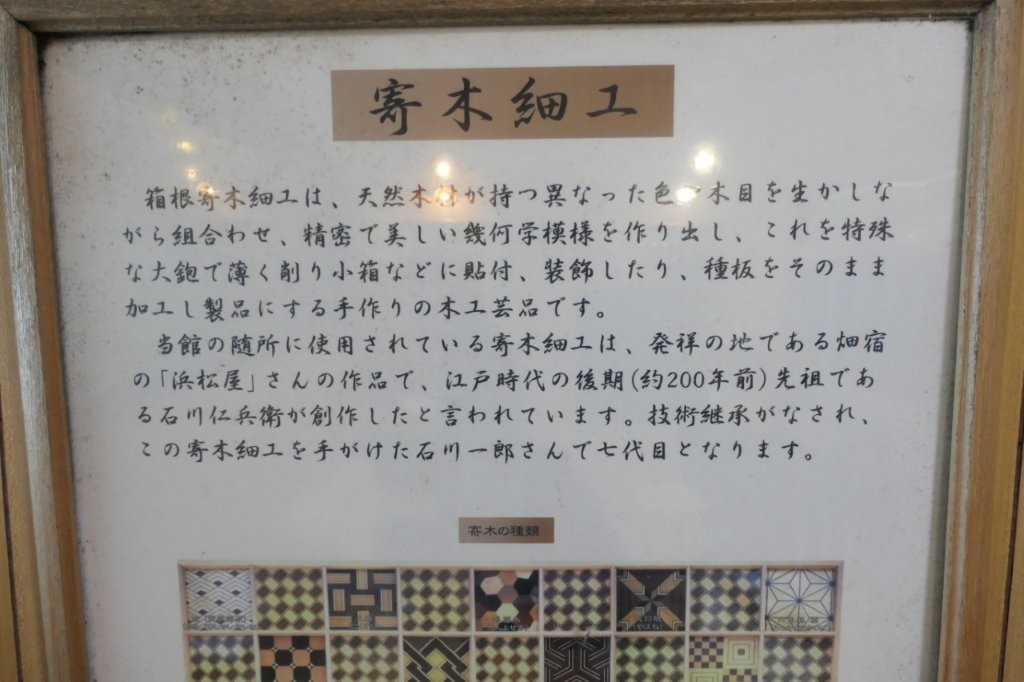 寄木細工
箱根寄木細工は、天然木材が持つ異なった色や木目を生かしな
がら組合わせ、精密で美しい幾何学模様を作り出し、これを特殊
な大鉋で薄く削り小箱などに貼付、装飾したり、種板をそのまま
加工し製品にする手作りの木工芸品です。
当館の随所に使用されている寄木細工は、発祥の地である畑宿
の「浜松屋」さんの作品で、江戸時代の後期(約200年前)先祖であ
る石川仁兵衛が創作したと言われています。技術継承がなされ、
この寄木細工を手がけた石川一郎さんで七代目となります。
寄木の種類